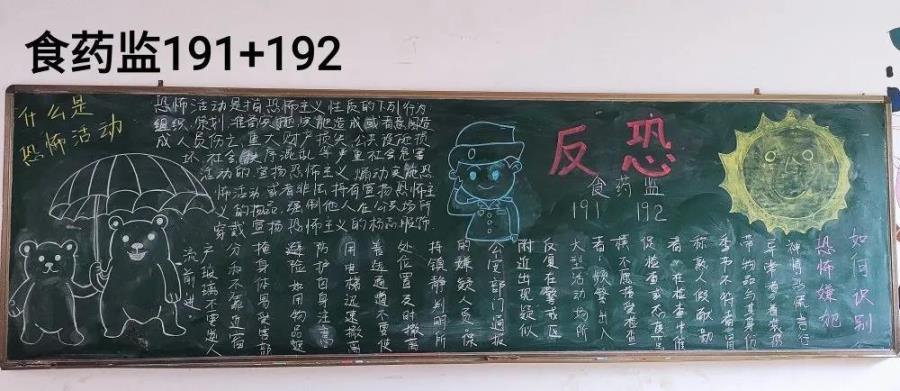 食药监191+192
什么是
恐怖活动
恐怖活动是指恐怖主义性质的下列行为
组织、策划、准备实施、造成或者意图造
成人员伤亡、重大财产损失、公共设施损
坏、社会秩序混乱等严重社会危害
活动的宣扬恐怖主义，煽动实施恐
怖活动或者非法持有宣扬恐怖主
义的物品，强制他人在公共场所
穿戴宣扬恐怖主义的标志服饰
反恐
食药监
191 192
如何识别
恐怖嫌犯
神情恐慌，言行
异常者；着装携
带物品与其身份
季节不符者；冒
称熟人假献殷
者；在检查中催
促检查或态度蛮
横不愿接受检查
者；频繁出入
大型活动场所
反复在警戒区
附近出现疑似
公安部门通报
的嫌疑人员；保
持镇静判明所
处位置及时撤离
善选通道不要使
用电梯迅速撤离
防护自身注意
避险利用物品遮
掩身体易受害部
分和不要靠近窗
户玻璃不要逆人
流前进